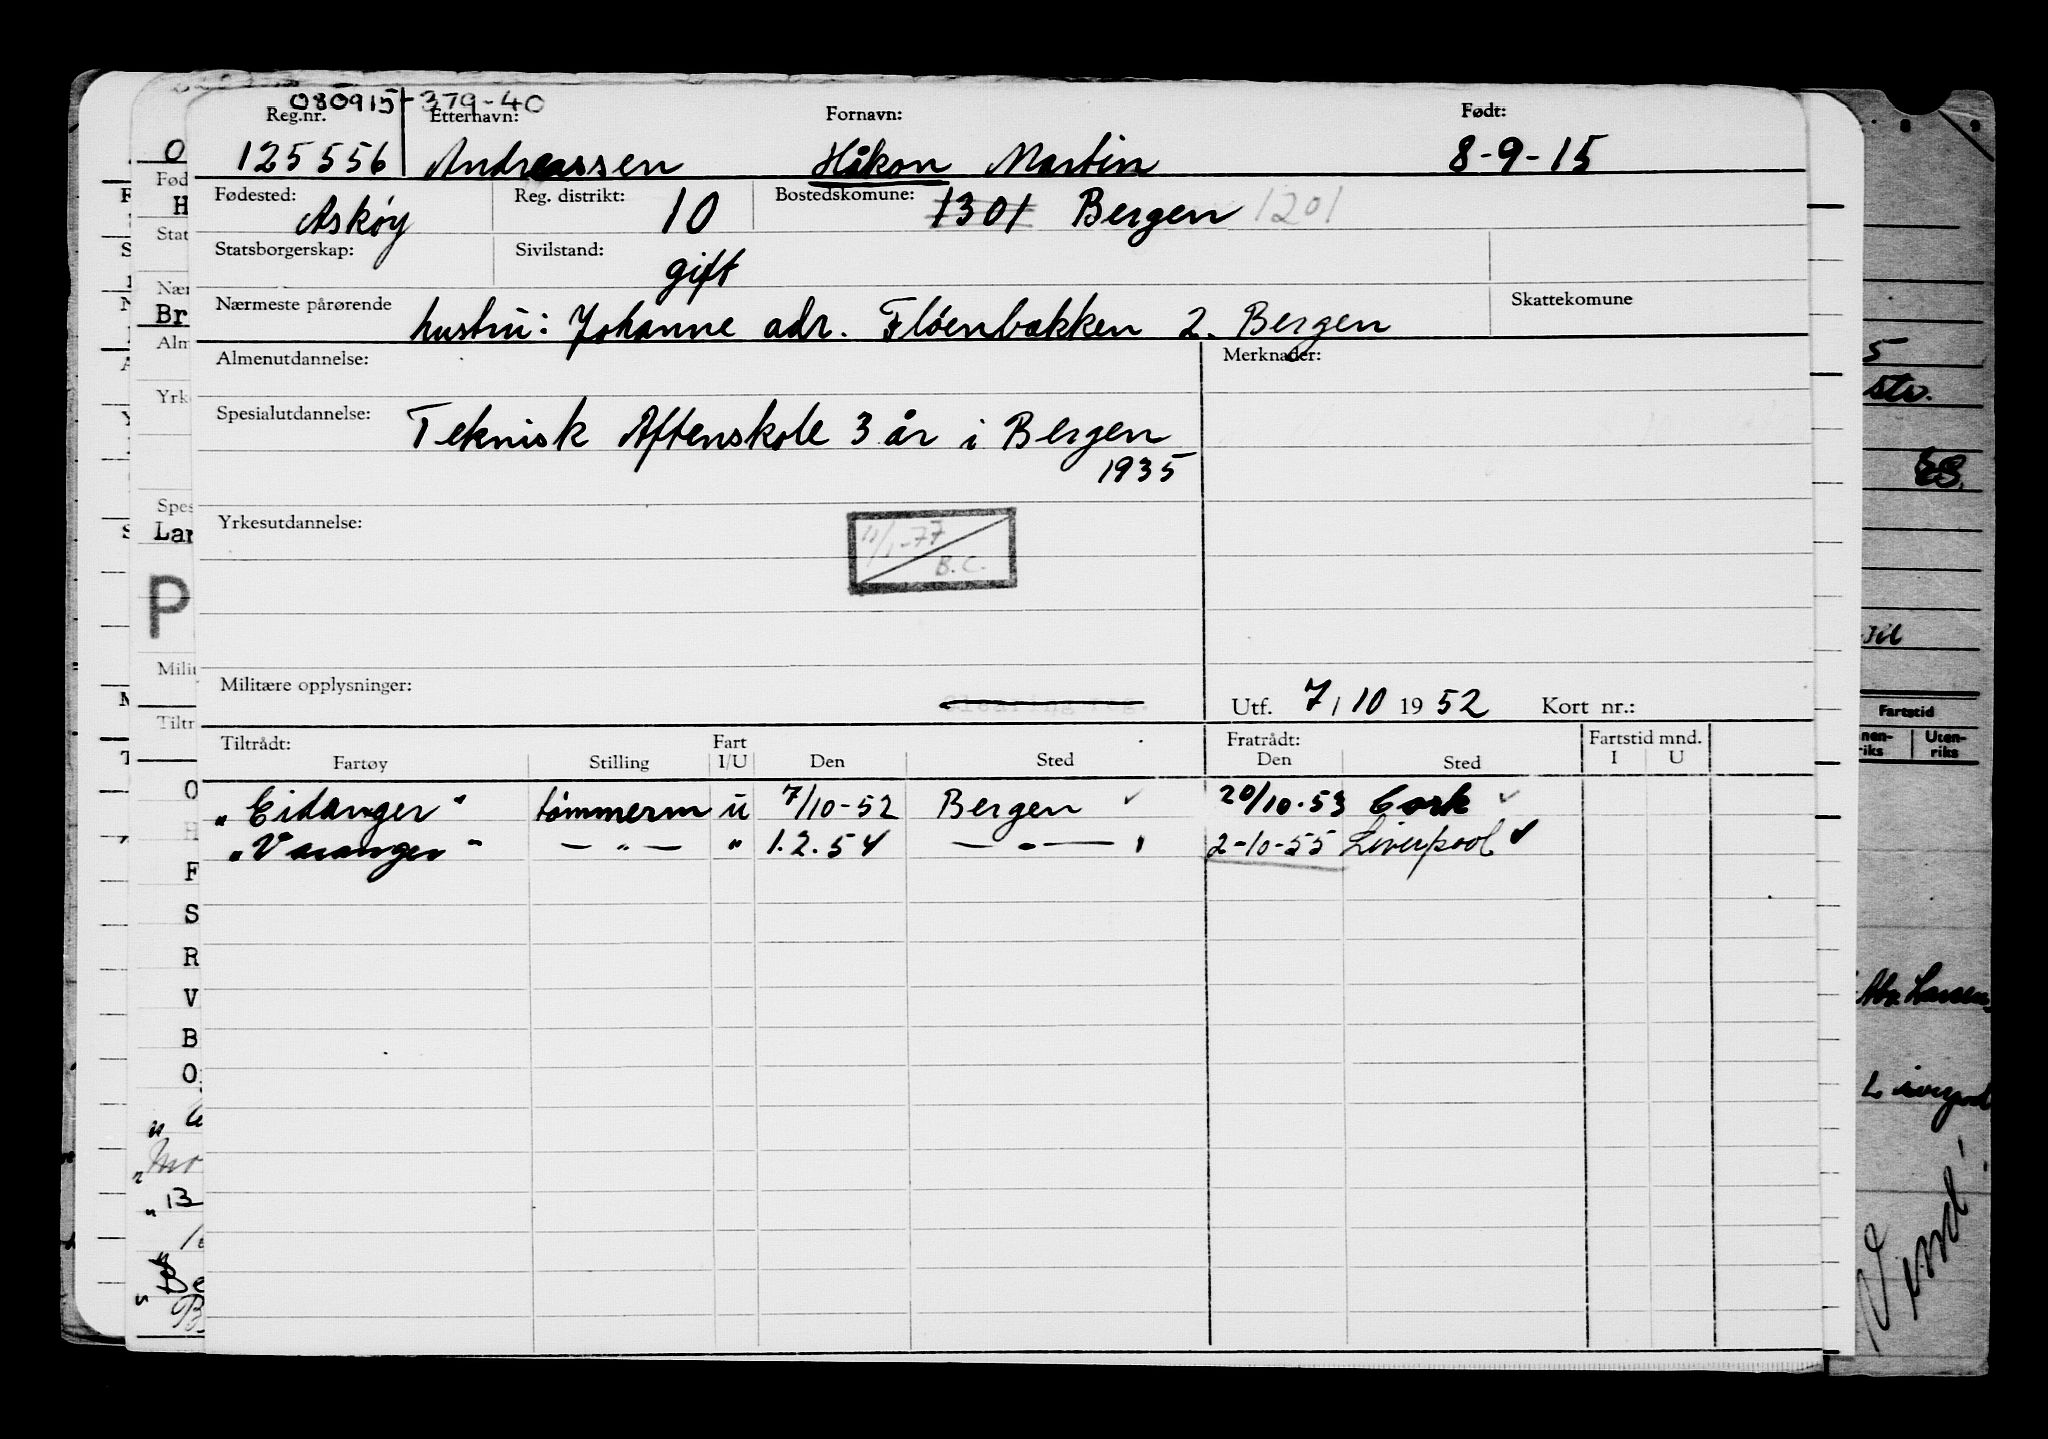 080915-379-40
Reg.nr. Etternavn: Fornavn: Født:
125556 Andreassen Håkon Martin 8-9-15
Fødested: Askøy Reg. distrikt: 10 Bostedskomune: 1301 Bergen 1201
Statsborgerskap: Sivilstand: gift
Nærmeste pårørende hustru: Johanne adr. Fløenbakken 2. Bergen Skattekomune
Almenutdannelse: Merknader:
Spesialutdannelse: Teknisk Aftenskole 3 år i Bergen
1935
Yrkesutdannelse: 11/1-77
B.C.
Militære opplysninger: Utf. 7/10 1952 Kort nr.:
Tiltrådt: Fart Fratrådt: Fartstid mnd.
Fartøy Stilling I/U Den Sted Den Sted I U
"Eidanger" tømmerm u 7/10-52 Bergen 20/10-53 Cork
"Varanger" — " — " 1.2.54 — " — 2-10-55 Liverpool
O
Fød
H
Stat
Nær
Br
Alm
Yrk
Spes
Lar
P
Milit
Tiltr
O
H
F
S
R
V
B
O
5
Fartstid
nen-riks Uten-riks